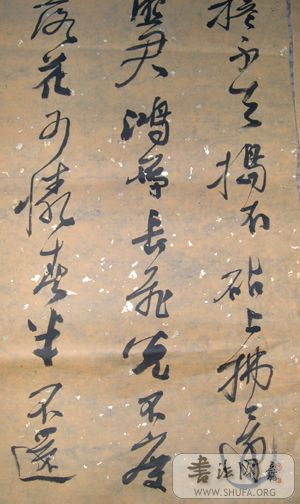 捲不去搗衣砧上拂還
照君鴻雁長飛光不度
落花可憐春半不還
書法網
WWW.SHUFA.ORG